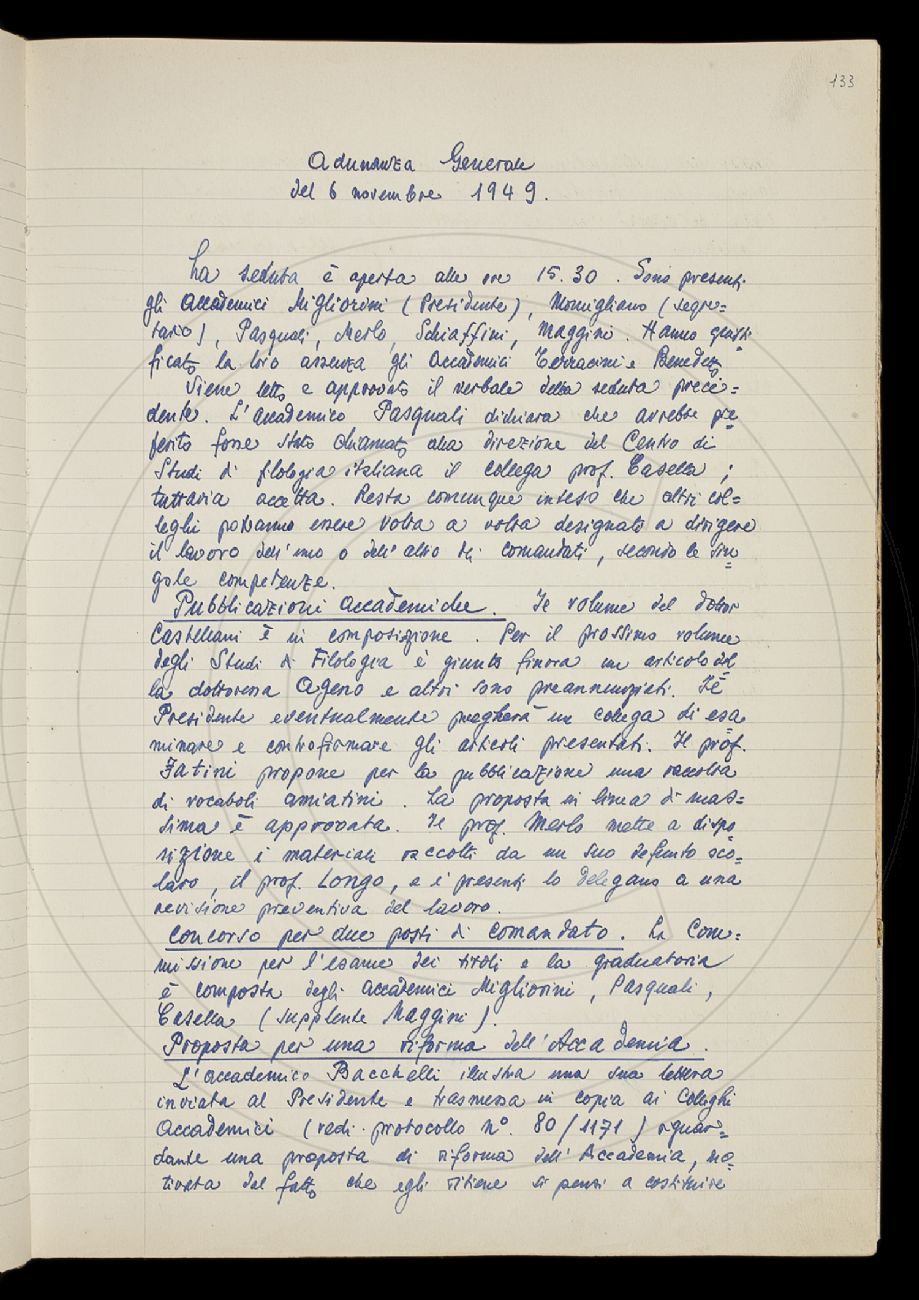 133
Adunanza Generale
del 6 novembre 1949.
La seduta è aperta alle ore 15.30. Sono presenti
gli Accademici Migliorini (Presidente), Momigliano (segre=
tario), Pasquali, Merlo, Schiaffini, Maggini. Hanno giusti
ficato la loro assenza gli Accademici Terracini e Benedetto.
Viene letto e approvato il verbale della seduta prece=
dente. L'accademico Pasquali dichiara che avrebbe pre=
ferito fosse stato chiamato alla direzione del Centro di
Studi di filologia italiana il collega prof. Casella;
tuttavia accetta. Resta comunque inteso che altri col=
leghi potranno essere volta a volta designati a dirigere
il lavoro dell'uno o dell'altro dei comandati, secondo le sin=
gole competenze.
Pubblicazioni accademiche. Il volume del dottor
Castellani è in composizione. Per il prossimo volume
degli Studi di Filologia è giunto finora un articolo del
la dottoressa Ageno e altri sono preannunziati. Il
Presidente eventualmente pregherà un collega di esa=
minare e controfirmare gli articoli presentati. Il prof.
Fatini propone per la pubblicazione una raccolta
di vocaboli amiatini. La proposta in linea di mas=
sima è approvata. Il prof. Merlo mette a dispo=
sizione i materiali raccolti da un suo defunto sco=
laro, il prof. Longo, e i presenti lo delegano a una
revisione preventiva del lavoro.
Concorso per due posti di comandato. La Com=
missione per l'esame dei titoli e la graduatoria
è composta degli Accademici Migliorini, Pasquali,
Casella (supplente Maggini).
Proposta per una riforma dell'Accademia.
L'accademico Bacchelli illustra una sua lettera
inviata al Presidente e trasmessa in copia ai Colleghi
Accademici (vedi protocollo n°. 80/1171) riguar=
dante una proposta di riforma dell'Accademia, mo=
tivata dal fatto che egli ritiene si pensi a costituire